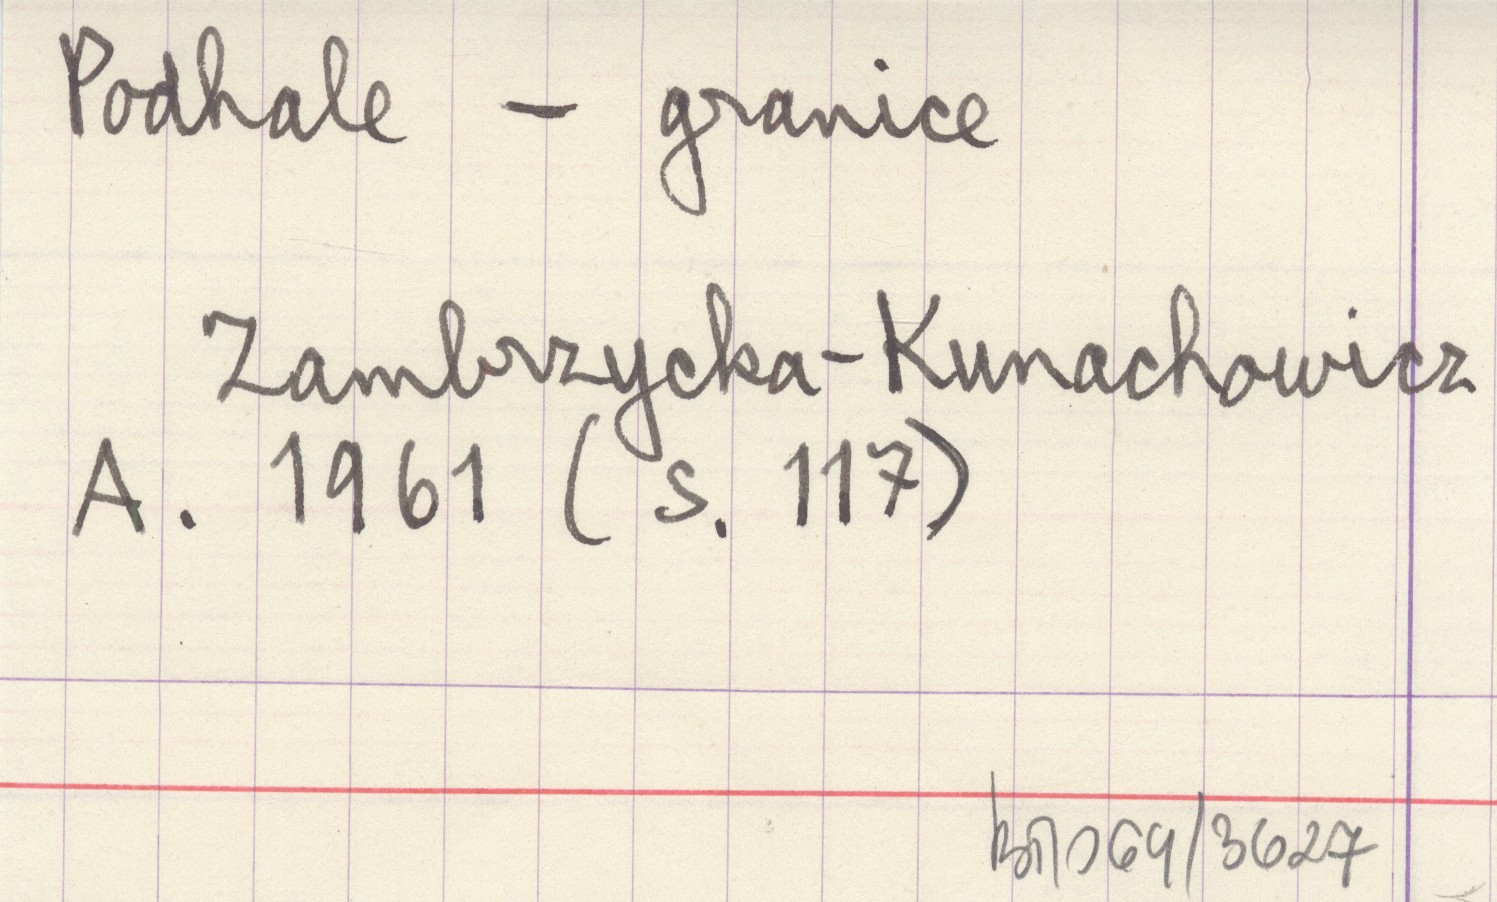 Podhale – granice
Zambrzycka-Kunachowicz
A. 1961 (s. 117)